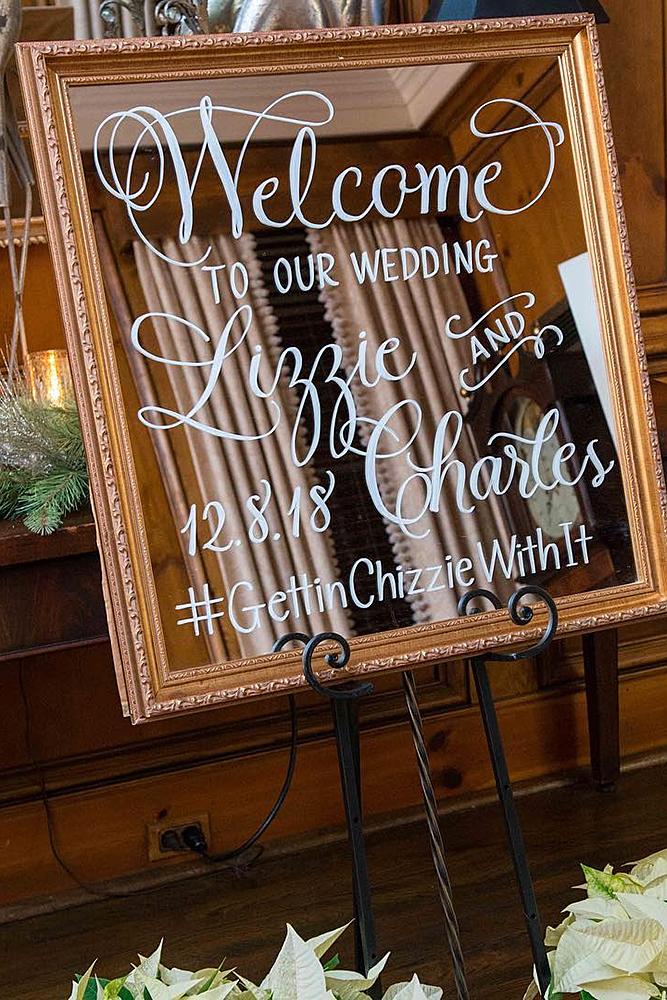 Welcome
TO OUR WEDDING
Lizzie AND
Charles
12.8.18
#GettinChizzieWithIt